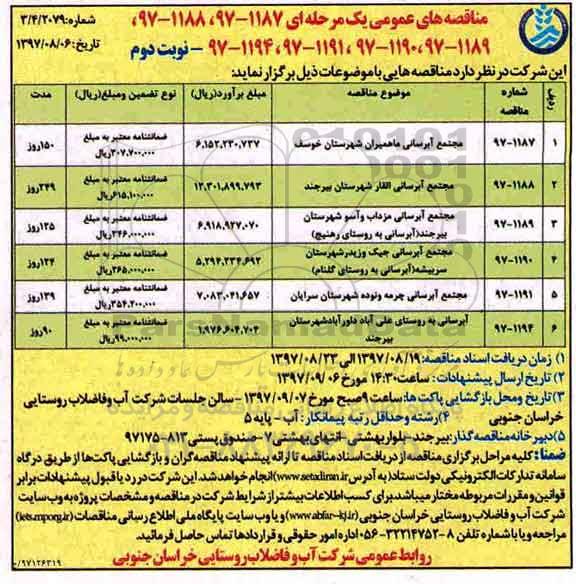 شماره: ۳/۴/۲۰۷۹
تاریخ: ۱۳۹۷/۰۸/۰۶
مناقصه های عمومی یک مرحله ای ۱۱۸۷-۹۷، ۱۱۸۸-۹۷،
۱۱۸۹-۹۷، ۱۱۹۰-۹۷، ۱۱۹۱-۹۷، ۱۱۹۴-۹۷ - نوبت دوم
این شرکت در نظر دارد مناقصه هایی با موضوعات ذیل برگزار نماید:
ردیف شماره مناقصه موضوع مناقصه مبلغ برآورد(ریال) نوع تضمین ومبلغ(ریال) مدت
۱ ۹۷-۱۱۸۷ مجتمع آبرسانی ماهمیران شهرستان خوسف ۶,۱۵۲,۲۳۰,۷۳۷ ضمانتنامه معتبر به مبلغ ۳۰۷,۷۰۰,۰۰۰ریال ۱۵۰روز
۲ ۹۷-۱۱۸۸ مجتمع آبرسانی القار شهرستان بیرجند ۱۲,۳۰۱,۸۹۹,۷۹۳ ضمانتنامه معتبر به مبلغ ۶۱۵,۱۰۰,۰۰۰ریال ۲۴۹روز
۳ ۹۷-۱۱۸۹ مجتمع آبرسانی مزداب وآسو شهرستان بیرجند(آبرسانی به روستای رهنیج) ۶,۹۱۸,۹۲۷,۰۷۰ ضمانتنامه معتبر به مبلغ ۳۴۶,۰۰۰,۰۰۰ریال ۱۲۵روز
۴ ۹۷-۱۱۹۰ مجتمع آبرسانی جیک وزیدرشهرستان سربیشه(آبرسانی به روستای گلنام) ۵,۲۹۴,۲۳۴,۶۹۲ ضمانتنامه معتبر به مبلغ ۲۶۵,۰۰۰,۰۰۰ریال ۱۲۴روز
۵ ۹۷-۱۱۹۱ مجتمع آبرسانی چرمه ونوده شهرستان سرایان ۷,۰۸۲,۰۴۱,۶۵۷ ضمانتنامه معتبر به مبلغ ۳۵۴,۲۰۰,۰۰۰ریال ۱۳۹روز
۶ ۹۷-۱۱۹۴ آبرسانی به روستای علی آباد داورآبادشهرستان بیرجند ۱,۹۷۶,۶۰۴,۷۰۴ ضمانتنامه معتبر به مبلغ ۹۹,۰۰۰,۰۰۰ریال ۹۰روز
۱) زمان دریافت اسناد مناقصه: ۱۳۹۷/۰۸/۱۹ الی ۱۳۹۷/۰۸/۲۳
۲) تاریخ ارسال پیشنهادات: ساعت ۱۴:۳۰ مورخ ۱۳۹۷/۰۹/۰۶
۳) تاریخ ومحل بازگشایی پاکت ها: ساعت ۹ صبح مورخ ۱۳۹۷/۰۹/۰۷ - سالن جلسات شرکت آب وفاضلاب روستایی
خراسان جنوبی ۴) رشته وحداقل رتبه پیمانکار: آب - پایه ۵
۵) دبیرخانه مناقصه گذار: بیرجند -بلواربهشتی-انتهای بهشتی ۷-صندوق پستی ۸۱۳-۹۷۱۷۵
ضمنا: کلیه مراحل برگزاری مناقصه از دریافت اسناد مناقصه تا ارائه پیشنهاد مناقصه گران و بازگشایی پاکت ها از طریق درگاه
سامانه تدارکات الکترونیکی دولت ستاد(به آدرس www.setadiran.ir) انجام خواهد شد. این شرکت در رد یا قبول پیشنهادات برابر
قوانین و مقررات مربوطه مختار میباشد. برای کسب اطلاعات بیشتر از شرایط شرکت در مناقصه و مشخصات پروژه به وب سایت
شرکت آب و فاضلاب روستایی خراسان جنوبی (www.abfar-kj.ir) و یا وب سایت پایگاه ملی اطلاع رسانی مناقصات (iets.mporg.ir)
مراجعه و یا با شماره تلفن ۸-۳۲۲۱۴۷۵۲-۰۵۶ اداره امور حقوقی و قراردادها تماس حاصل فرمائید.
روابط عمومی شرکت آب و فاضلاب روستایی خراسان جنوبی
۹۷۱۲۶۳۱۹/
ParsNamadData